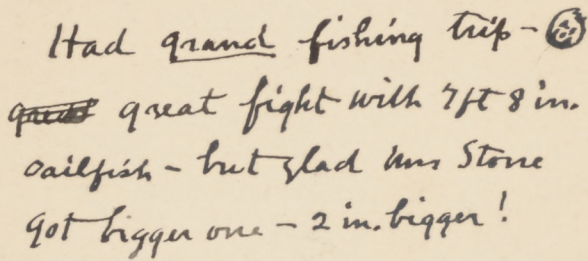 Had grand fishing trip -
great great fight with 7ft 8 in.
sailfish - but glad Mrs Stone
got bigger one - 2 in. bigger!